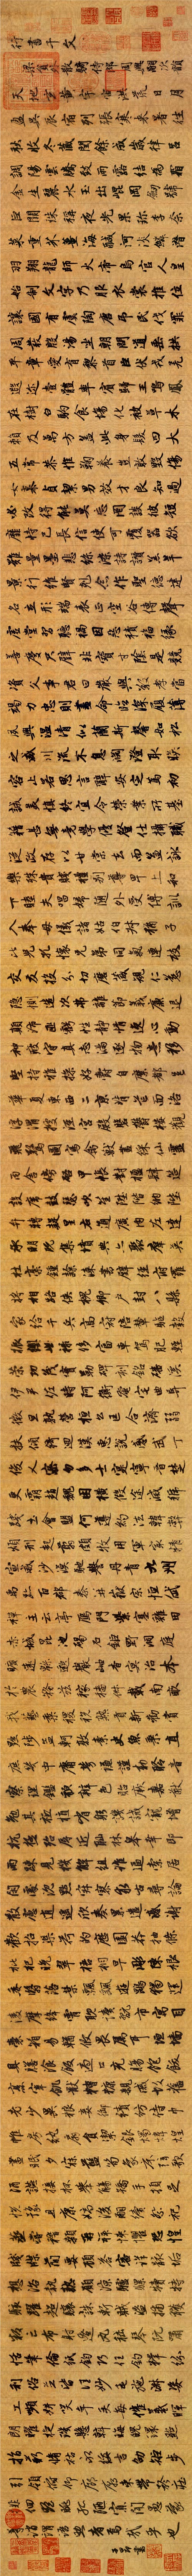 行書千文
梁員外散騎侍郎周興嗣次韻
天地玄黃宇宙洪荒日月
盈昃辰宿列張寒來暑往
秋收冬藏閏餘成歲律呂
調陽雲騰致雨露結為霜
金生麗水玉出崑岡劍號
巨闕珠稱夜光果珍李柰
菜重芥薑海鹹河淡鱗潛
羽翔龍師火帝鳥官人皇
始制文字乃服衣裳推位
讓國有虞陶唐弔民伐罪
周發殷湯坐朝問道垂拱
平章愛育黎首臣伏戎羌
遐邇壹體率賓歸王鳴鳳
在樹白駒食場化被草木
賴及萬方蓋此身髮四大
五常恭惟鞠養豈敢毀傷
女慕貞潔男效才良知過
必改得能莫忘罔談彼短
靡恃己長信使可覆器欲
難量墨悲絲染詩讚羔羊
景行維賢剋念作聖德建
名立形端表正空谷傳聲
虛堂習聽禍因惡積福緣
善慶尺璧非寶寸陰是競
資父事君曰嚴與敬孝當
竭力忠則盡命臨深履薄
夙興溫凊似蘭斯馨如松
之盛川流不息淵澄取映
容止若思言辭安定篤初
誠美慎終宜令榮業所基
籍甚無竟學優登仕攝職
從政存以甘棠去而益詠
樂殊貴賤禮別尊卑上和
下睦夫唱婦隨外受傅訓
入奉母儀諸姑伯叔猶子
比兒孔懷兄弟同氣連枝
交友投分切磨箴規仁慈
隱惻造次弗離節義廉退
顛沛匪虧性靜情逸心動
神疲守真志滿逐物意移
堅持雅操好爵自縻都邑
華夏東西二京背芒面洛
浮渭據涇宮殿盤鬱樓觀
飛驚圖寫禽獸畫綵仙靈
丙舍傍啟甲帳對楹肆筵
設席鼓瑟吹笙陞階納陛
弁轉疑星右通廣內左達
承明既集墳典亦聚群英
杜稿鍾隸漆書壁經府羅
將相路俠槐卿戶封八縣
家給千兵高冠陪輦驅轂
振纓世祿侈富車駕肥輕
策功茂實勒碑刻銘磻溪
伊尹佐時阿衡奄宅曲阜
微旦孰營桓公匡合濟弱
扶傾綺迴漢惠說感武丁
俊乂密勿多士寔寧晉楚
更霸趙魏困橫假途滅虢
踐土會盟何遵約法韓弊
煩刑起翦頗牧用軍最精
宣威沙漠馳譽丹青九州
禹跡百郡秦并嶽宗恒岱
禪主云亭雁門紫塞雞田
赤城昆池碣石鉅野洞庭
曠遠綿邈巖岫杳冥治本
於農務茲稼穡俶載南畝
我藝黍稷稅熟貢新勸賞
黜陟孟軻敦素史魚秉直
庶幾中庸勞謙謹敕聆音
察理鑑貌辨色貽厥嘉猷
勉其祗植省躬譏誡寵增
抗極殆辱近恥林皋幸即
兩疏見機解組誰逼索居
閑處沉默寂寥求古尋論
散慮逍遙欣奏累遣慼謝
歡招渠荷的歷園莽抽條
枇杷晚翠梧桐早凋陳根
委翳落葉飄颻遊鵾獨運
凌摩絳霄耽讀翫市寓目
囊箱易輶攸畏屬耳垣牆
具膳湌飯適口充腸飽飫
烹宰飢厭糟糠親戚故舊
老少異糧妾御績紡侍巾
帷房紈扇圓潔銀燭煒煌
晝眠夕寐藍筍象床弦歌
酒讌接杯舉觴矯手頓足
悅豫且康嫡後嗣續祭祀
蒸嘗稽顙再拜悚懼恐惶
牋牒簡要顧答審詳骸垢
想浴執熱願涼驢騾犢特
駭躍超驤誅斬賊盜捕獲
叛亡布射遼丸嵇琴阮嘯
恬筆倫紙鈞巧任釣釋紛
利俗並皆佳妙毛施淑姿
工嚬妍笑年矢每催羲暉
朗曜琁璣懸斡晦魄環照
指薪修祜永綏吉劭矩步
引領俯仰廊廟束帶矜莊
徘徊瞻眺孤陋寡聞愚蒙
等誚謂語助者焉哉乎也
子昂書